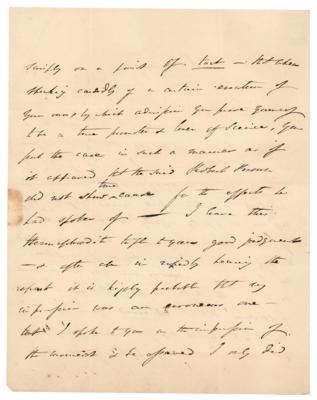 simply on a point of tact — that when
speaking candidly of a certain of
your own by which admission you prove yourself
to be a true promoter & lover of Science, you
put the case in such a manner as if
it appeared that the said Robert
did not show a true cause for the effects he
had spoken of — I leave this
to your good judgment
— & after all in hearing the
report it is highly probable that my
impression was an erroneous one —
but I spoke to you on the impression of
the moment & be assured I only did